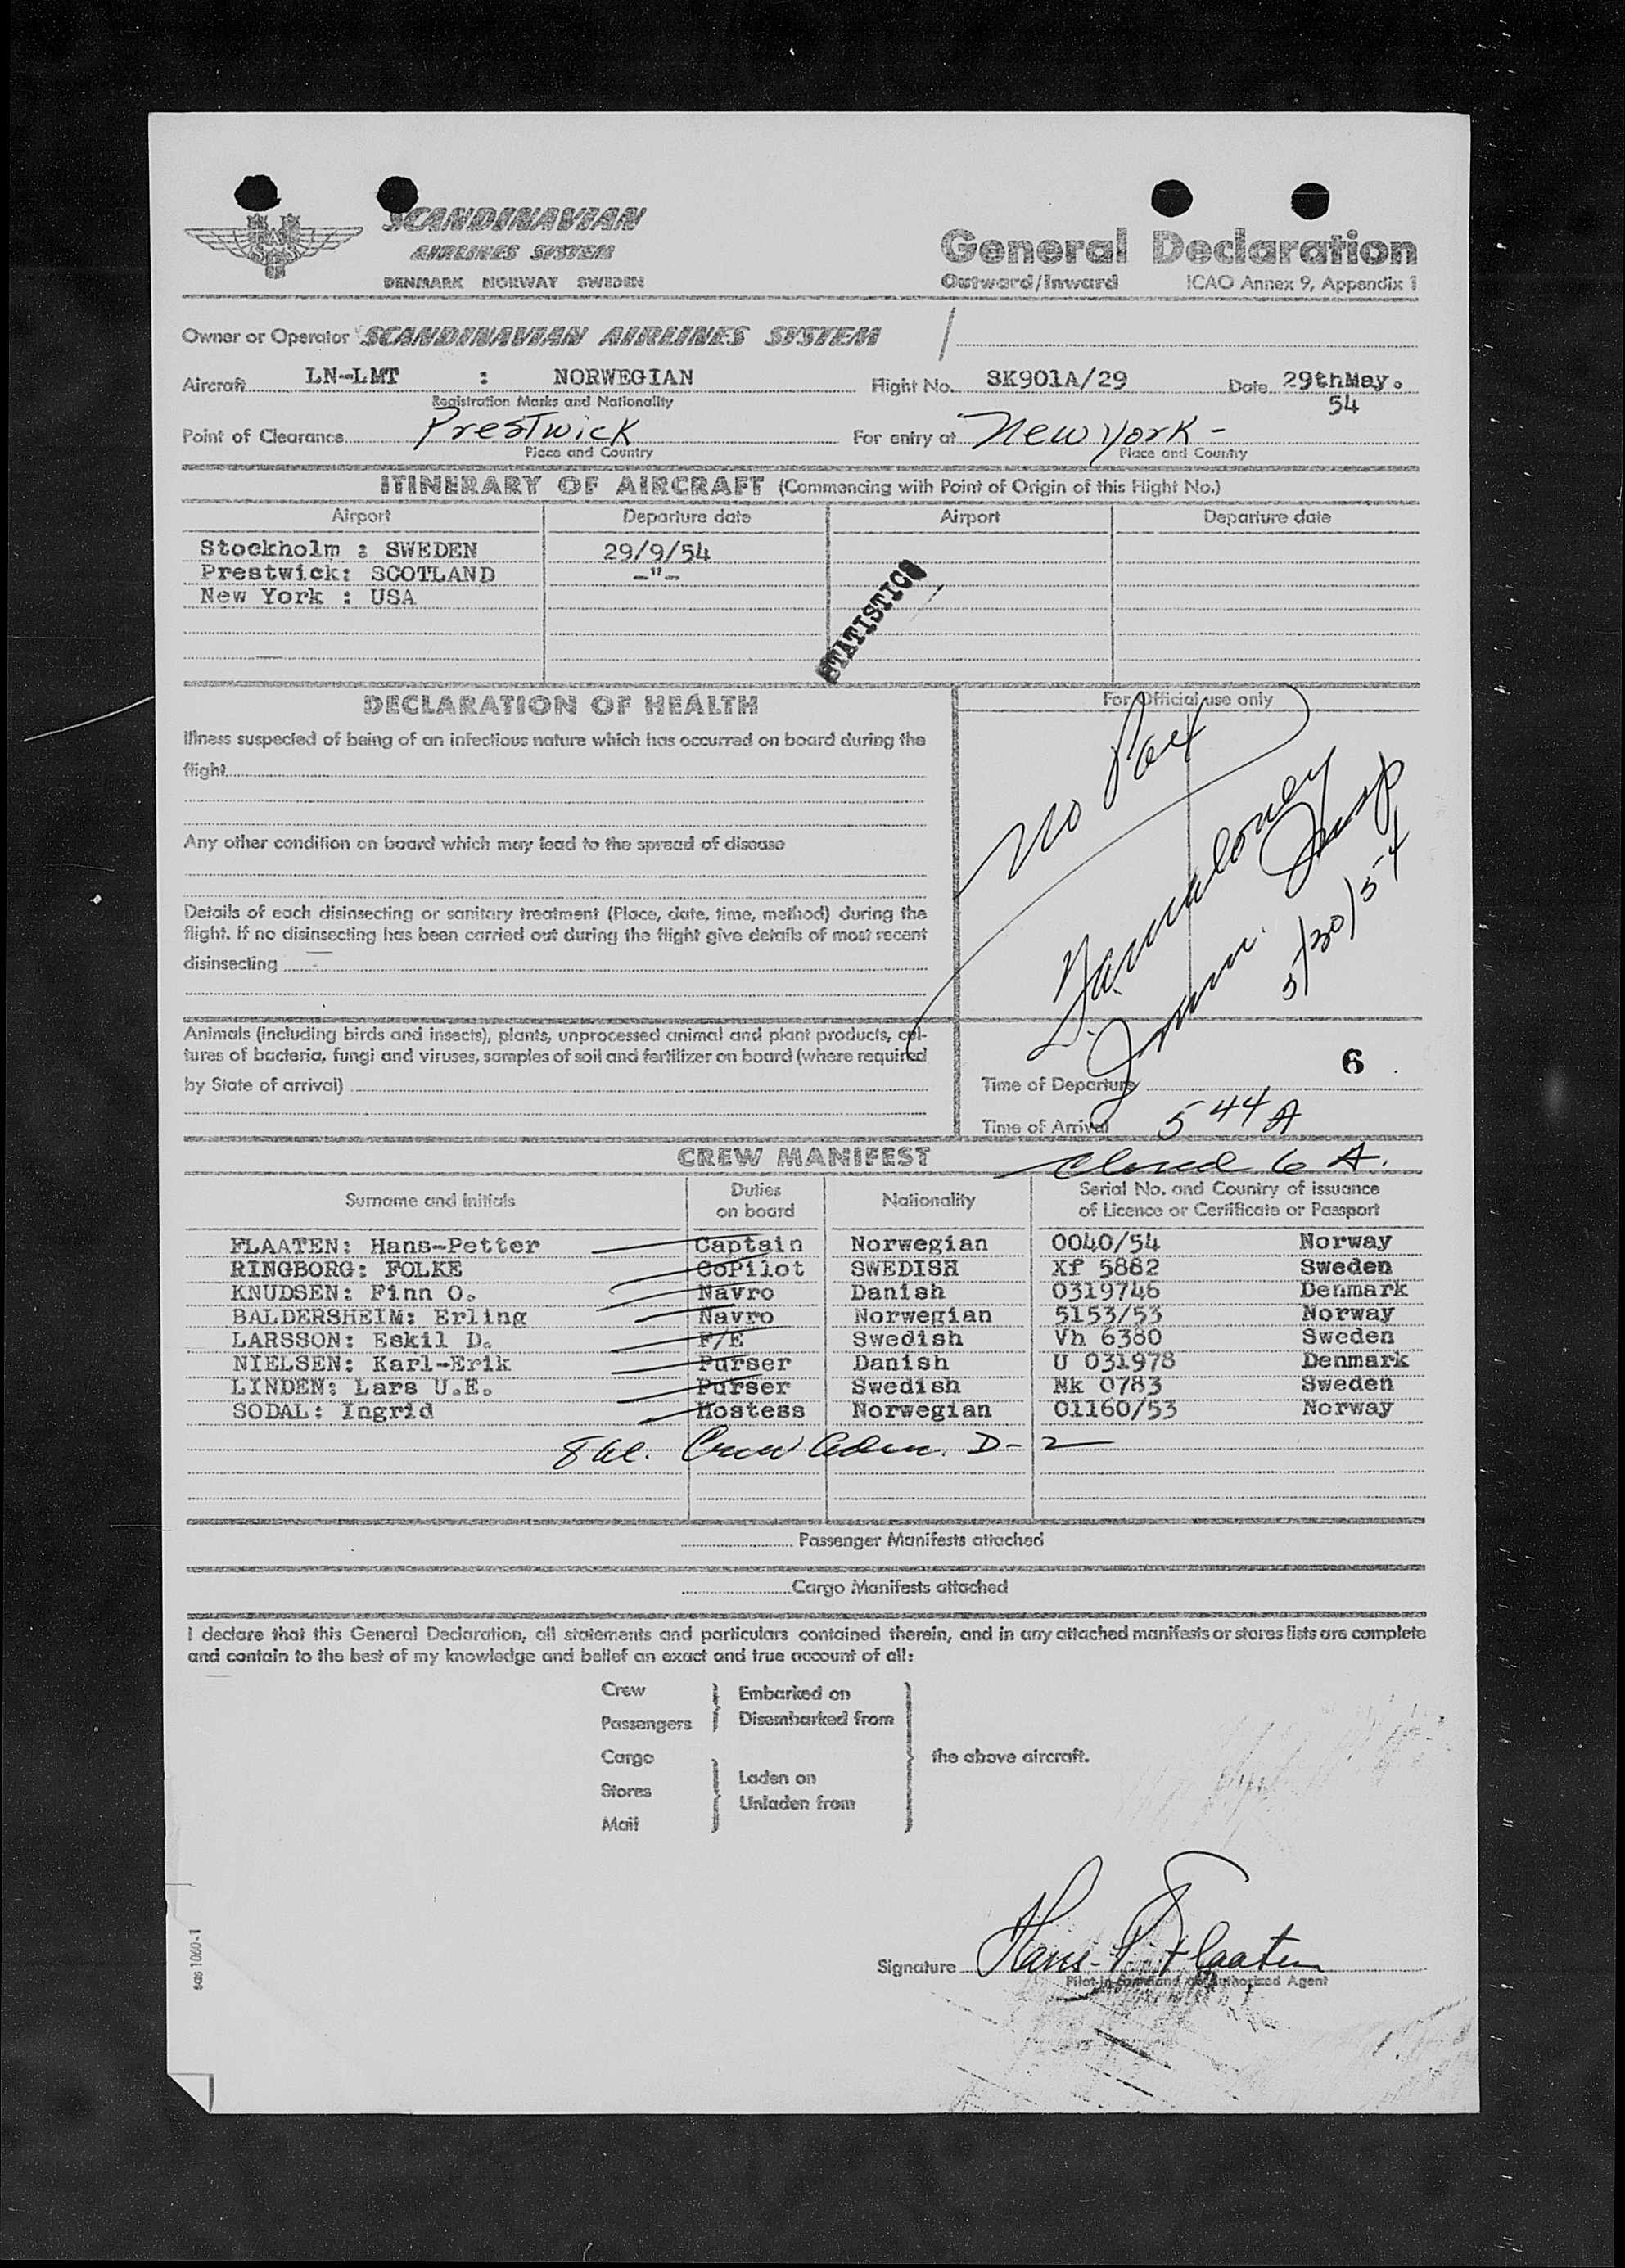 SCANDINAVIAN
AIRLINES SYSTEM
DENMARK NORWAY SWEDEN
General Declaration
Outward/Inward ICAO Annex 9, Appendix 1
Owner or Operator SCANDINAVIAN AIRLINES SYSTEM
Aircraft LN-LMT : NORWEGIAN Flight No. SK901A/29 Date 29thMay.
54
Registration Marks and Nationality
Point of Clearance Prestwick For entry at New York -
Place and Country Place and Country
ITINERARY OF AIRCRAFT (Commencing with Point of Origin of this Flight No.)
Airport Departure date Airport Departure date
Stockholm : SWEDEN 29/9/54
Prestwick: SCOTLAND -"-
New York : USA
STATISTICS
DECLARATION OF HEALTH
For Official use only
Illness suspected of being of an infectious nature which has occurred on board during the
flight
Any other condition on board which may lead to the spread of disease
Details of each disinsecting or sanitary treatment (Place, date, time, method) during the
flight. If no disinsecting has been carried out during the flight give details of most recent
disinsecting
No Pax
Immn. Insp
5/30/54
Animals (including birds and insects), plants, unprocessed animal and plant products, cul-
tures of bacteria, fungi and viruses, samples of soil and fertilizer on board (where required
by State of arrival)
6
Time of Departure
Time of Arrival 5 44 A
CREW MANIFEST
Closed 6 A.
Surname and initials Duties on board Nationality Serial No. and Country of issuance of Licence or Certificate or Passport
FLAATEN: Hans-Petter Captain Norwegian 0040/54 Norway
RINGBORG: FOLKE CoPilot SWEDISH Xf 5882 Sweden
KNUDSEN: Finn O. Navro Danish 0319746 Denmark
BALDERSHEIM: Erling Navro Norwegian 5153/53 Norway
LARSSON: Eskil D. F/E Swedish Vh 6380 Sweden
NIELSEN: Karl-Erik Purser Danish U 031978 Denmark
LINDEN: Lars U.E. Purser Swedish Nk 0783 Sweden
SODAL: Ingrid Hostess Norwegian 01160/53 Norway
8 Crew Adm. D-2
Passenger Manifests attached
Cargo Manifests attached
I declare that this General Declaration, all statements and particulars contained therein, and in any attached manifests or stores lists are complete
and contain to the best of my knowledge and belief an exact and true account of all:
Crew
Passengers
Embarked on
Disembarked from
Cargo
Stores
Mail
Laden on
Unladen from
the above aircraft.
Signature Hans-P. Flaaten
Pilot-in-command or Authorized Agent
sas 1060-1